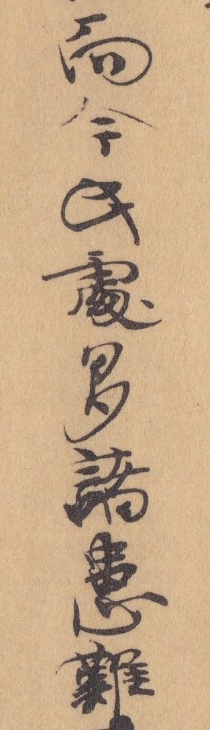 而今此處多諸患難